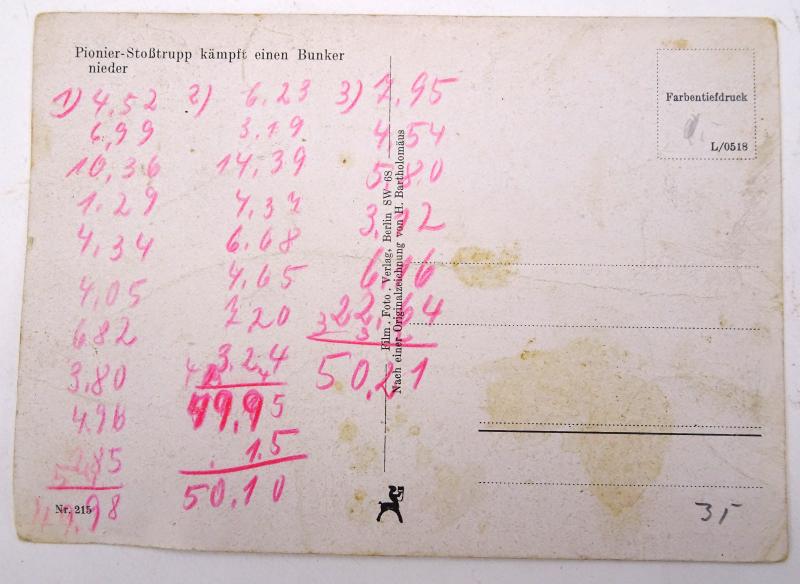 Pionier-Stoßtrupp kämpft einen Bunker
nieder
1) 4,52
6,99
10,36
1.29
4,34
4,05
682
3,80
4,96
2,85
2) 6.23
3.19
14,39
4,37
6.68
4,65
7 20
3.24
49,95
.15
50,10
3) 7,95
4,54
5,80
22,64
50,21
Film . Foto . Verlag, Berlin SW 68
Nach einer Originalzeichnung von H. Bartholomäus
Farbentiefdruck
L/0518
Nr. 215